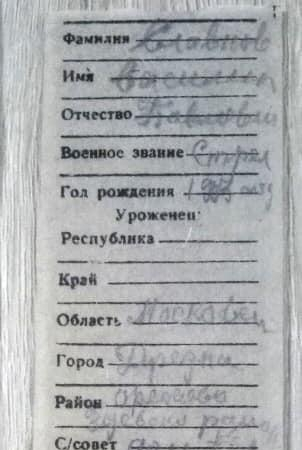 Фамилия Славнов
Имя Василий
Отчество Павлович
Военное звание Стрел
Год рождения
Уроженец:
Республика
Край
Область Московск
Город Дрезна
Район Орехово
Зуевско район
С/совет